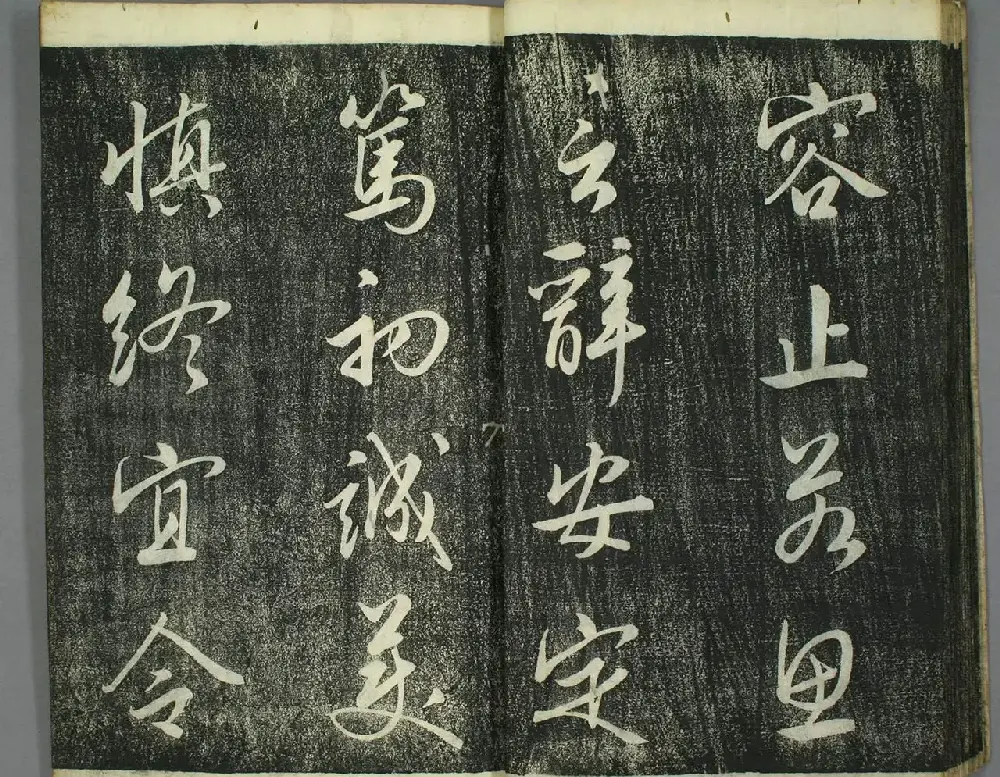 容止若思
云辭安定
篤初誠美
慎終宜令
7